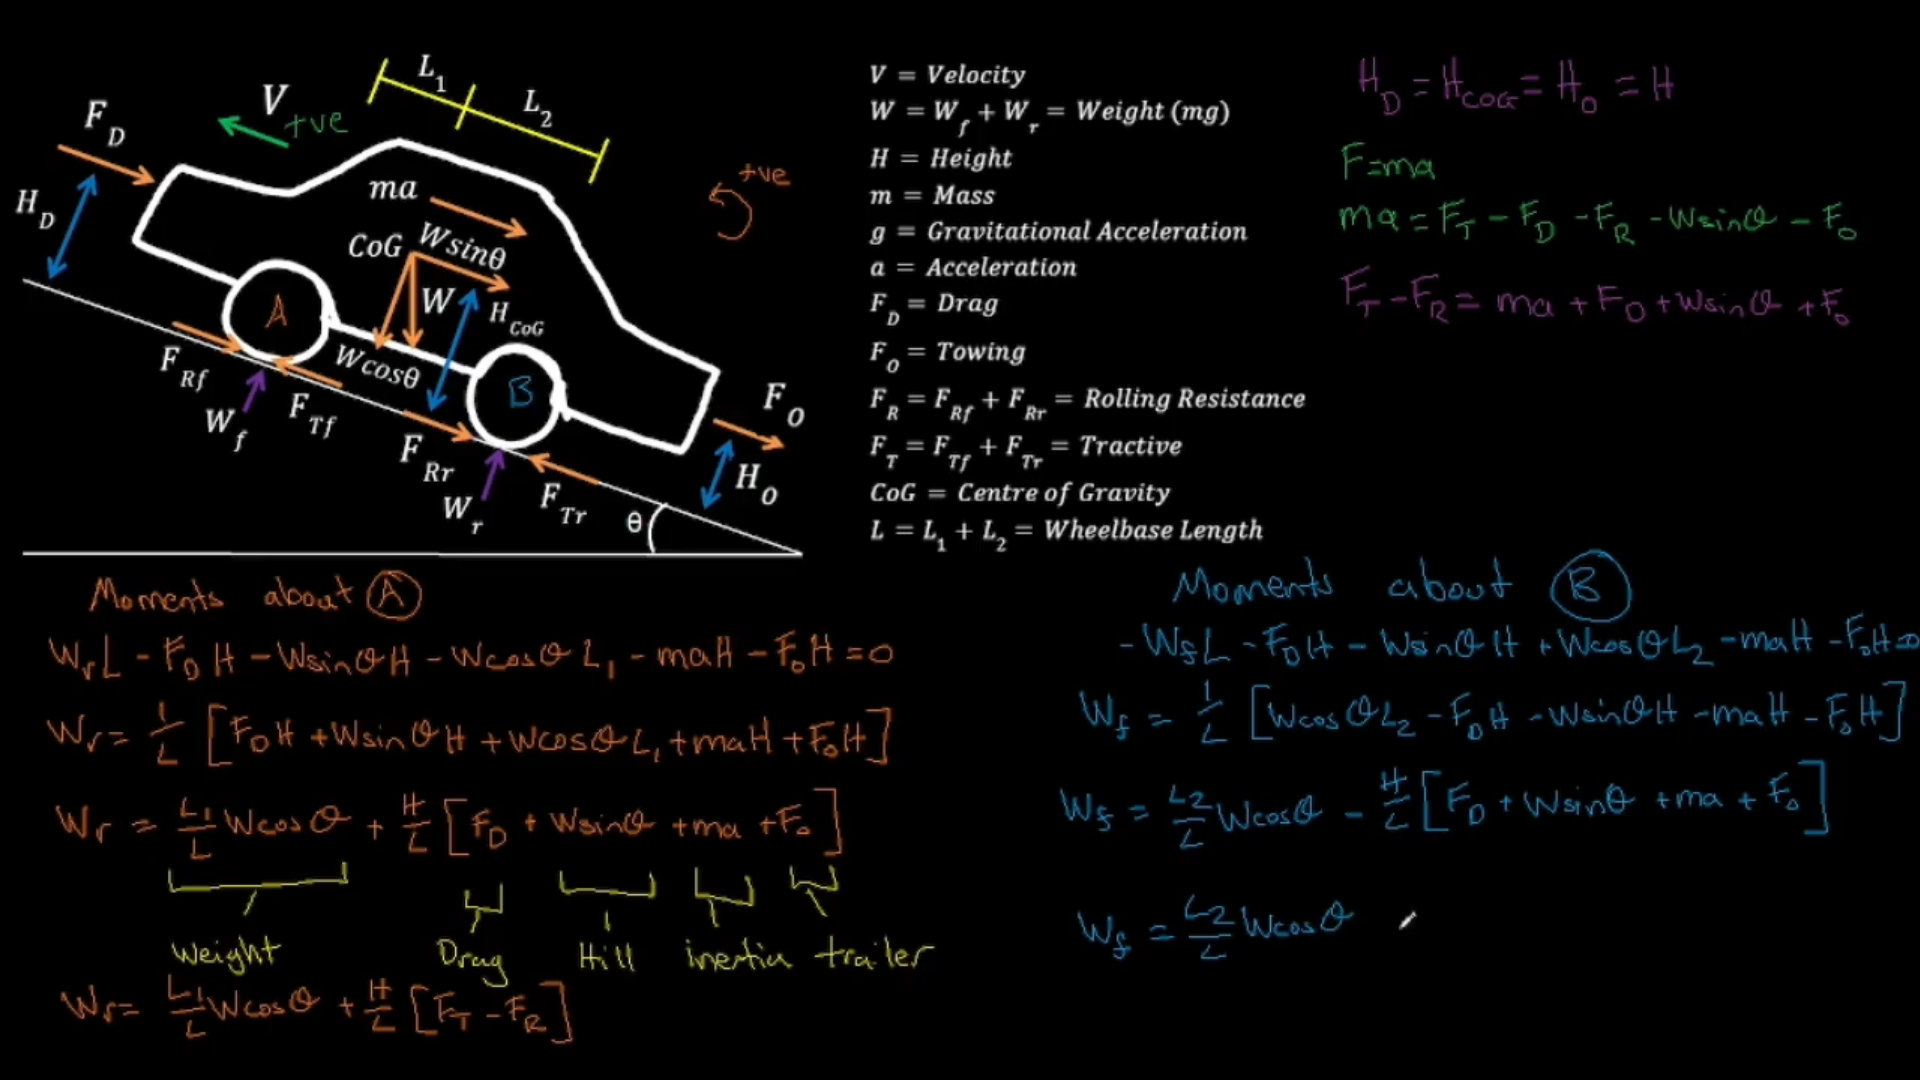 L1
L2
V +ve
FD
HD
ma
CoG
Wsinθ
W
HCoG
Wcosθ
A
B
FRf
Wf
FTf
FRr
Wr
FTr
FO
HO
θ
+ve
V = Velocity
W = Wf + Wr = Weight (mg)
H = Height
m = Mass
g = Gravitational Acceleration
a = Acceleration
FD = Drag
FO = Towing
FR = FRf + FRr = Rolling Resistance
FT = FTf + FTr = Tractive
CoG = Centre of Gravity
L = L1 + L2 = Wheelbase Length
HD = HCOG = HO = H
F=ma
ma = FT - FD - FR - Wsinθ - FO
FT - FR = ma + FD + Wsinθ + FO
Moments about A
WrL - FDH - WsinθH - WcosθL1 - maH - FOH = 0
Wr = 1/L [FDH + WsinθH + WcosθL1 + maH + FOH]
Wr = L1/L Wcosθ + H/L [FD + Wsinθ + ma + FO]
Weight Drag Hill inertia trailer
Wr = L1/L Wcosθ + H/L [FT - FR]
Moments about B
- WfL - FDH - WsinθH + WcosθL2 - maH - FOH = 0
Wf = 1/L [WcosθL2 - FDH - WsinθH - maH - FOH]
Wf = L2/L Wcosθ - H/L [FD + Wsinθ + ma + FO]
Wf = L2/L Wcosθ